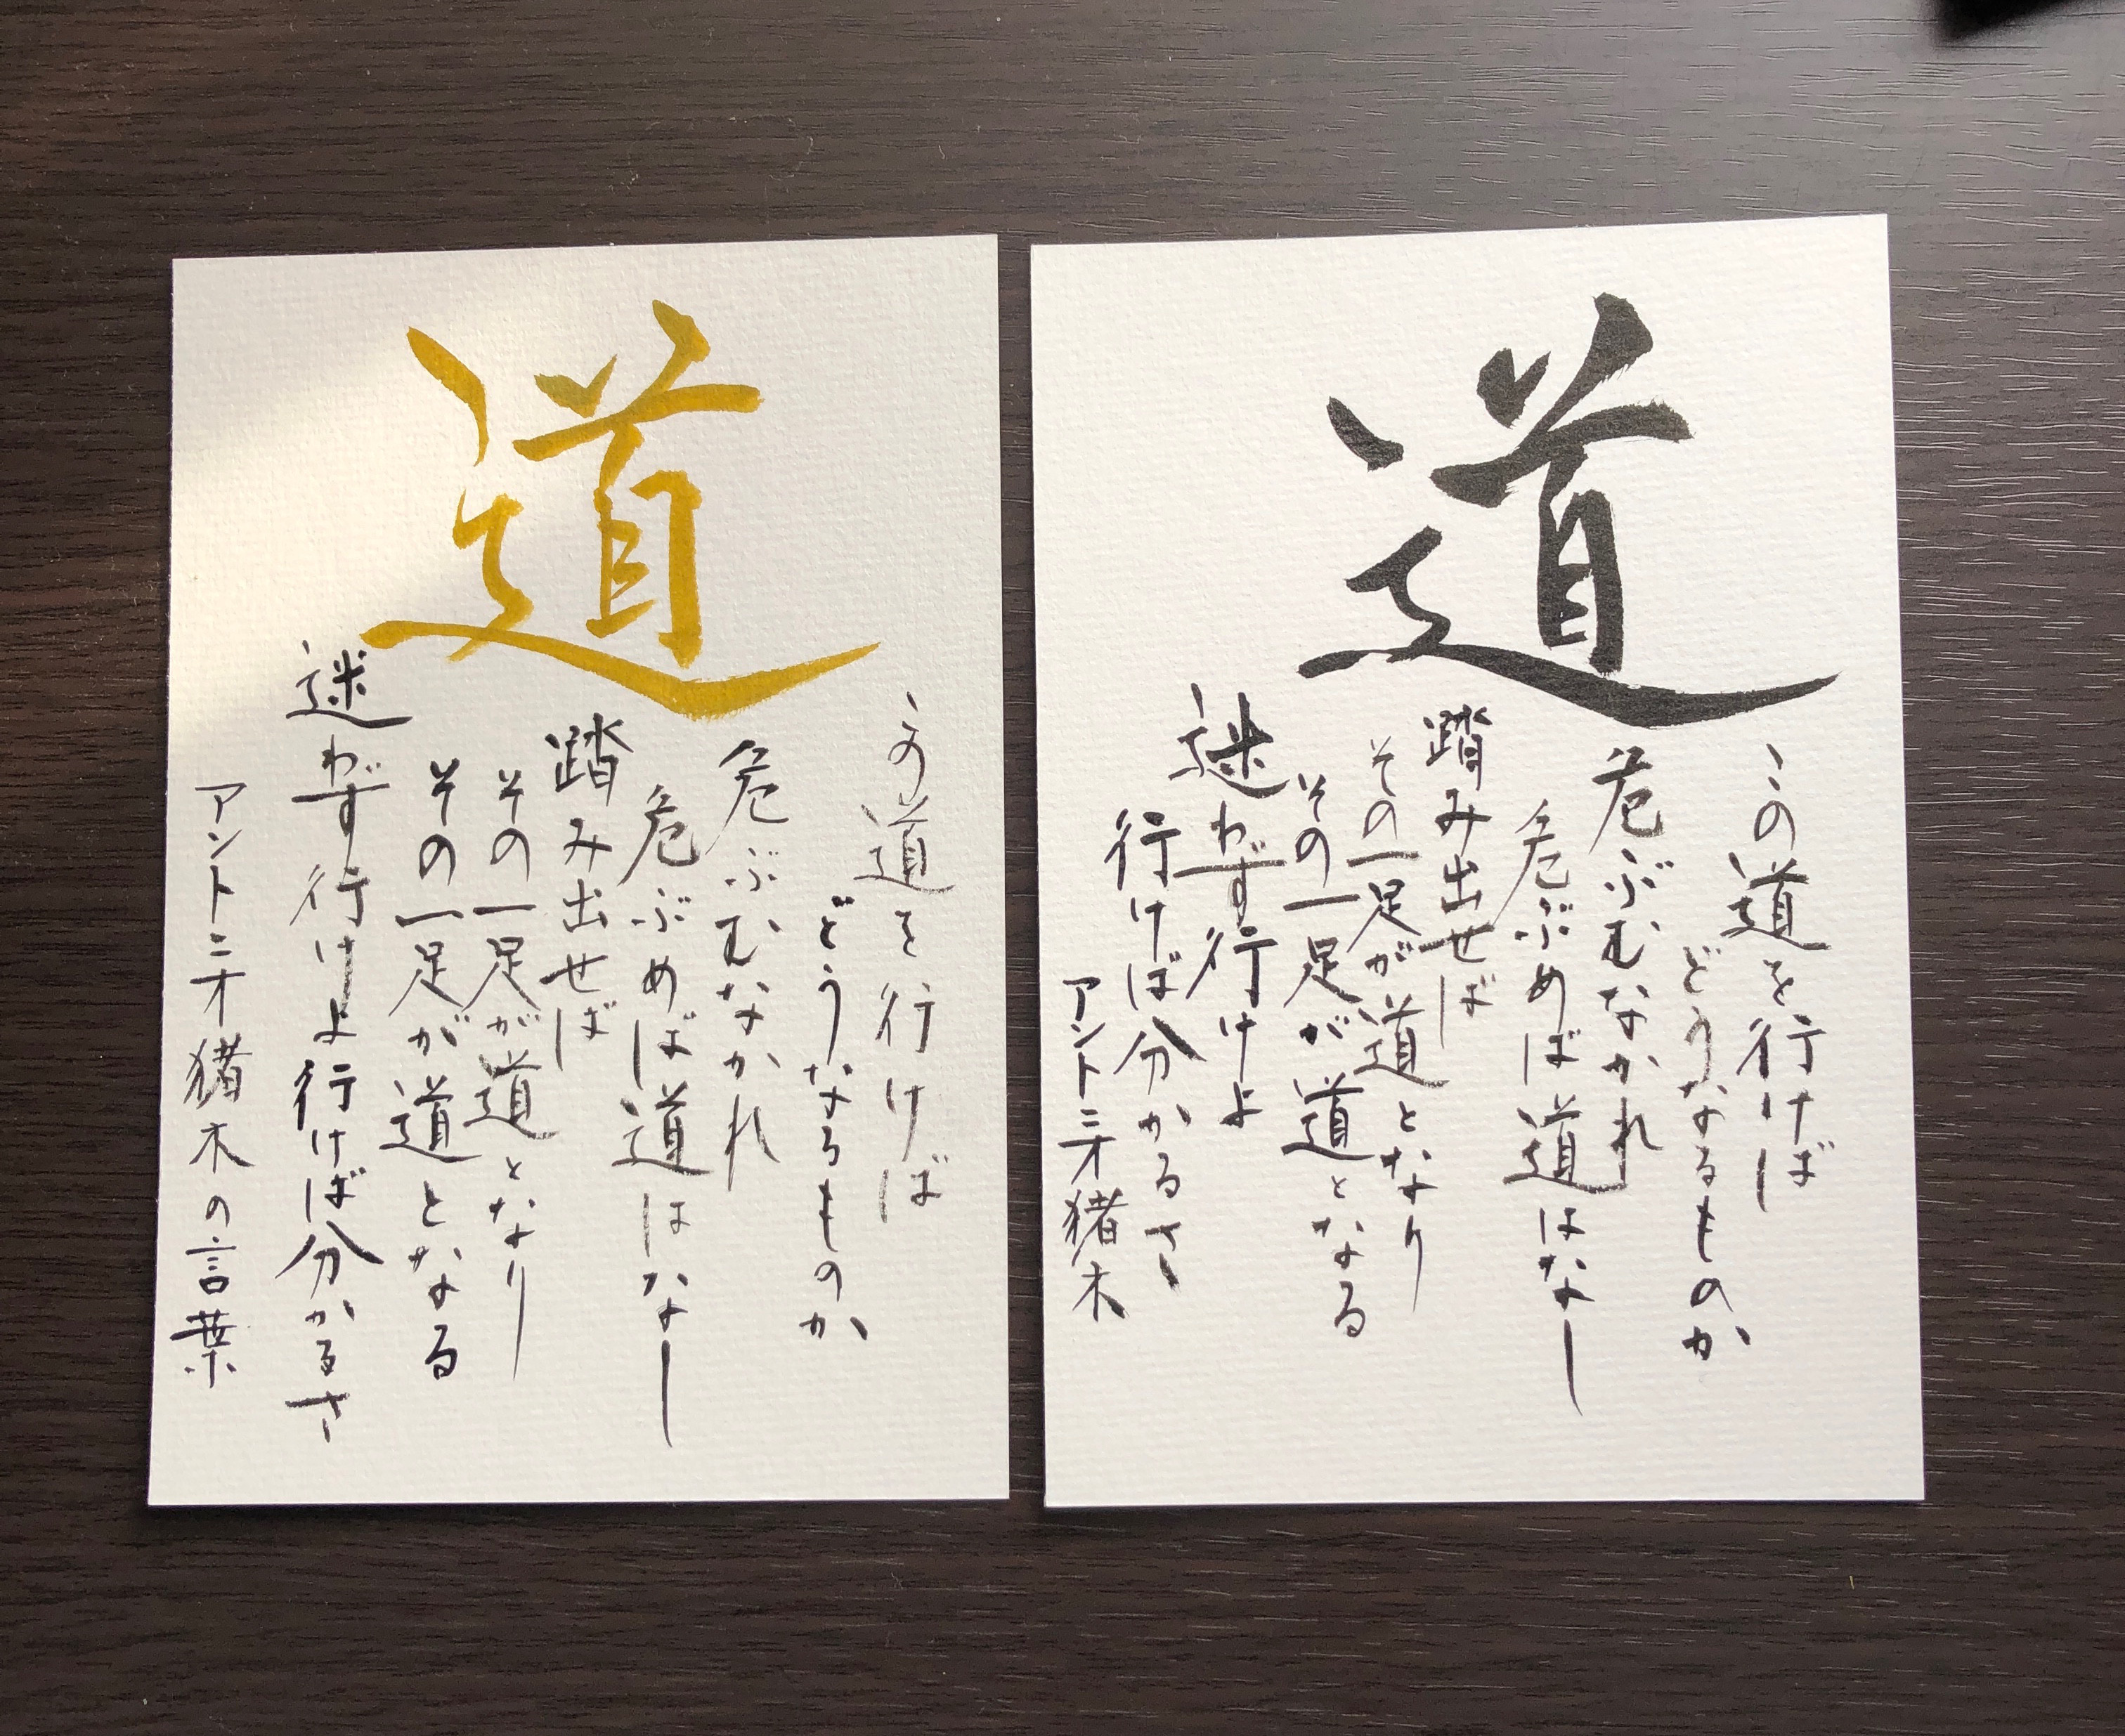 道
この道を行けば
どうなるものか
危ぶむなかれ
危ぶめば道はなし
踏み出せば
その一足が道となり
その一足が道となる
迷わず行けよ行けば分かるさ
アントニオ猪木の言葉
道
この道を行けば
どうなるものか
危ぶむなかれ
危ぶめば道はなし
踏み出せば
その一足が道となり
その一足が道となる
迷わず行けよ
行けば分かるさ
アントニオ猪木